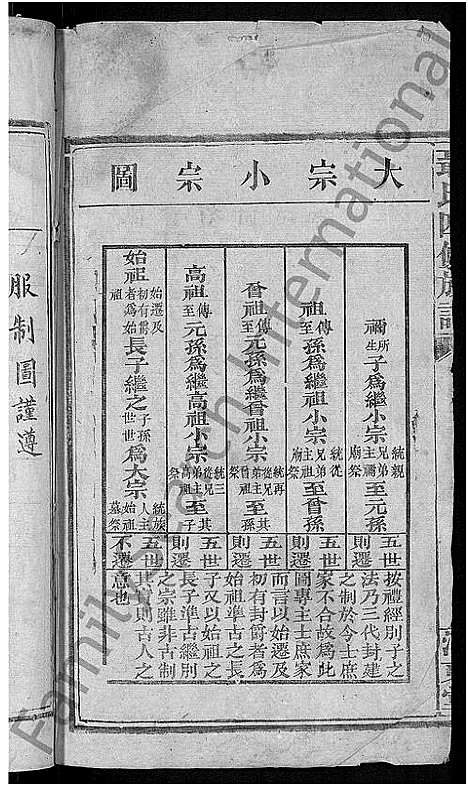 大宗小宗圖
禰所生子為繼禰小宗統親兄弟主禰廟祭至元孫五世則遷
祖傳至孫為繼祖小宗統從兄弟主祖廟祭至曾孫五世則遷
曾祖傳至元孫為繼曾祖小宗統再從兄弟主曾祖祭至其孫五世則遷
高祖傳至元孫為繼高祖小宗統三從兄弟主高祖祭至其子五世則遷
始祖始遷及初有爵者為始祖長子繼之子孫世世為大宗統族人主始祖墓祭五世不遷
按禮經別子之
法乃三代封建
之制於今士庶
家不合故為此
圖專主士庶家
而言以始遷及
初有封爵者為
始祖準古之長
子又以始祖之
長子準古繼別
之宗雖非古制
其實則古人之
意也
服制圖謹遵
氏四修族譜
FamilySearch International